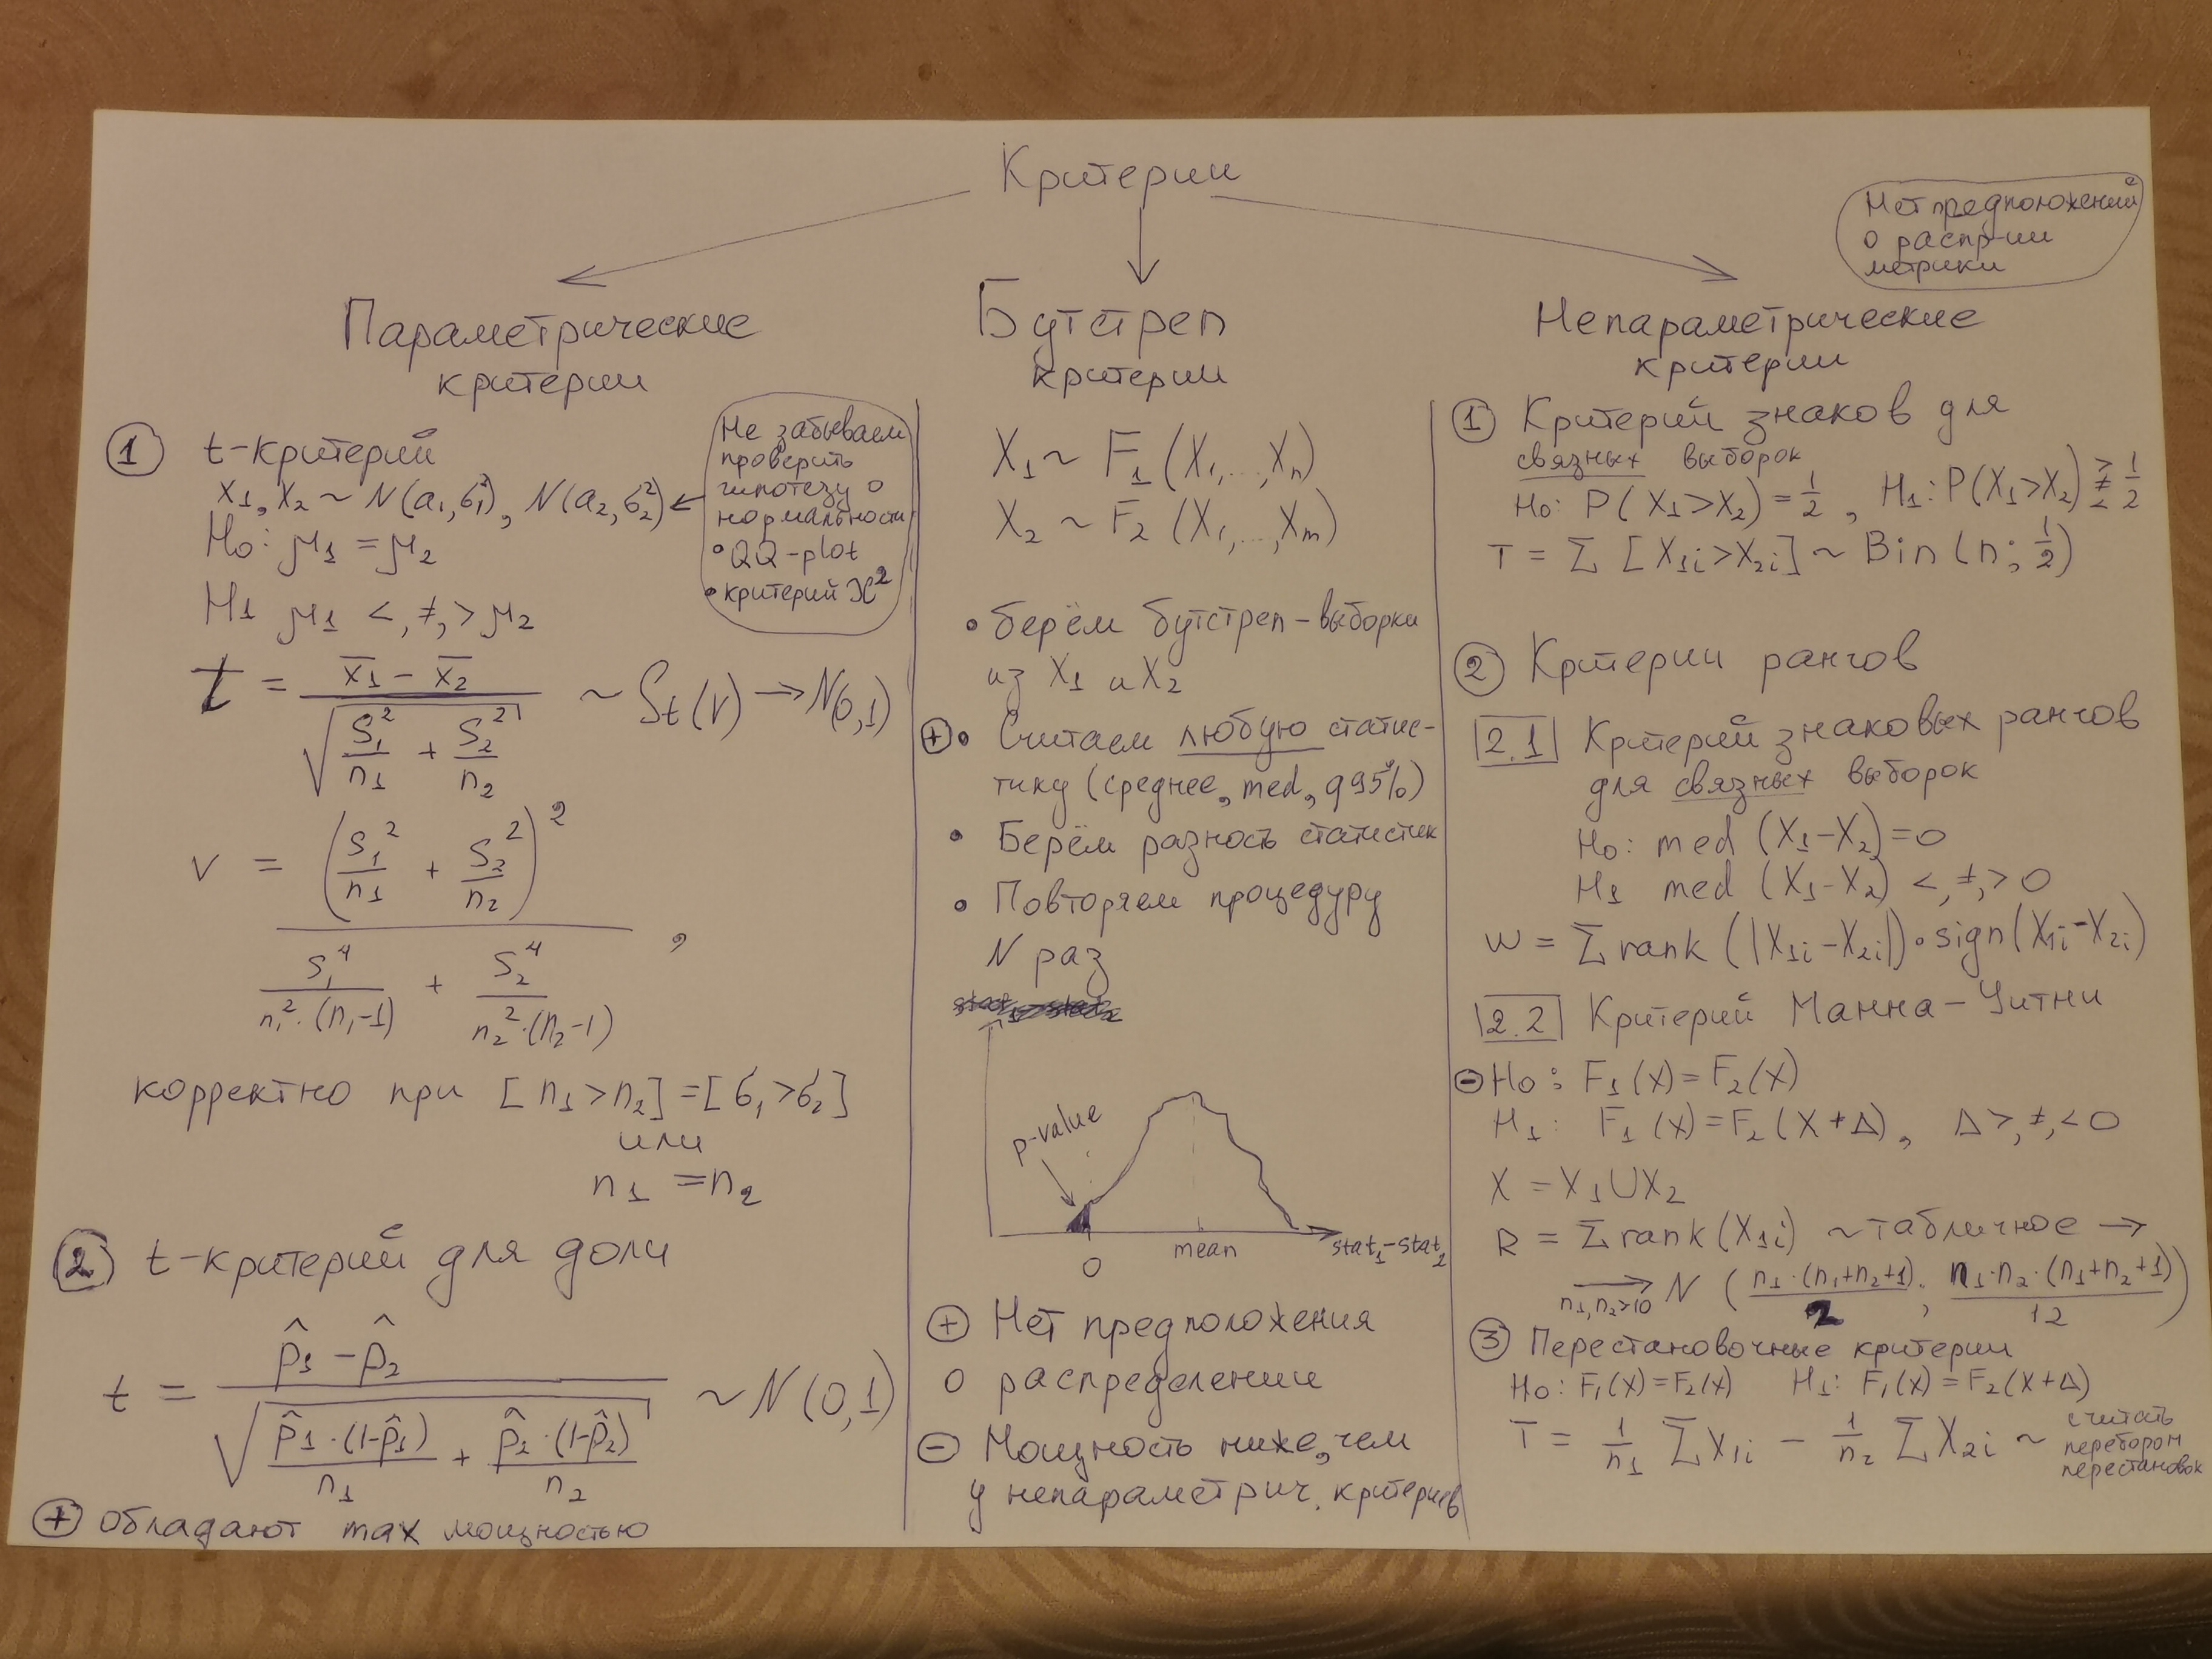 Критерии
Нет предположений
о распр-ии
метрики
Параметрические
критерии
① t-критерий
X₁, X₂ ~ N(a₁, σ₁²), N(a₂, σ₂²) ←
Не забываем
проверить
гипотезу о
нормальности
• QQ-plot
• критерий χ²
H₀: μ₁ = μ₂
H₁ μ₁ <, ≠, > μ₂
t = (x̄₁ - x̄₂) / √(S₁²/n₁ + S₂²/n₂) ~ St(ν) → N(0,1)
ν = (S₁²/n₁ + S₂²/n₂)² / (S₁⁴/(n₁²·(n₁-1)) + S₂⁴/(n₂²·(n₂-1))),
корректно при [n₁ > n₂] = [σ₁ > σ₂]
или
n₁ = n₂
② t-критерий для доли
t = (p̂₁ - p̂₂) / √(p̂₁·(1-p̂₁)/n₁ + p̂₂·(1-p̂₂)/n₂) ~ N(0,1)
⊕ обладают max мощностью
Бутстреп
критерии
X₁ ~ F₁(X₁,...,Xn)
X₂ ~ F₂(X₁,...,Xm)
• берём бутстреп-выборки
из X₁ и X₂
⊕• Считаем любую статис-
тику (среднее, med, q95%)
• Берём разность статистик
• Повторяем процедуру
N раз
p-value
0
mean
stat₁-stat₂
⊕ Нет предположения
о распределении
⊖ Мощность ниже, чем
у непараметрич. критериев
Непараметрические
критерии
① Критерий знаков для
связных выборок
H₀: P(X₁>X₂) = 1/2, H₁: P(X₁>X₂) >≠< 1/2
T = Σ [X₁ᵢ>X₂ᵢ] ~ Bin(n; 1/2)
② Критерии рангов
2.1 Критерий знаковых рангов
для связных выборок
H₀: med (X₁-X₂) = 0
H₁ med (X₁-X₂) <, ≠, > 0
W = Σ rank (|X₁ᵢ-X₂ᵢ|)·sign(X₁ᵢ-X₂ᵢ)
2.2 Критерий Манна-Уитни
⊖ H₀: F₁(X) = F₂(X)
H₁: F₁(X) = F₂(X+Δ), Δ >, ≠, < 0
X = X₁∪X₂
R = Σ rank(X₁ᵢ) ~ табличное →
→ n₁,n₂>10 N (n₁·(n₁+n₂+1)/2; n₁·n₂·(n₁+n₂+1)/12)
③ Перестановочные критерии
H₀: F₁(X)=F₂(X) H₁: F₁(X)=F₂(X+Δ)
T = 1/n₁ ΣX₁ᵢ - 1/n₂ ΣX₂ᵢ ~ считать
перебором
перестановок